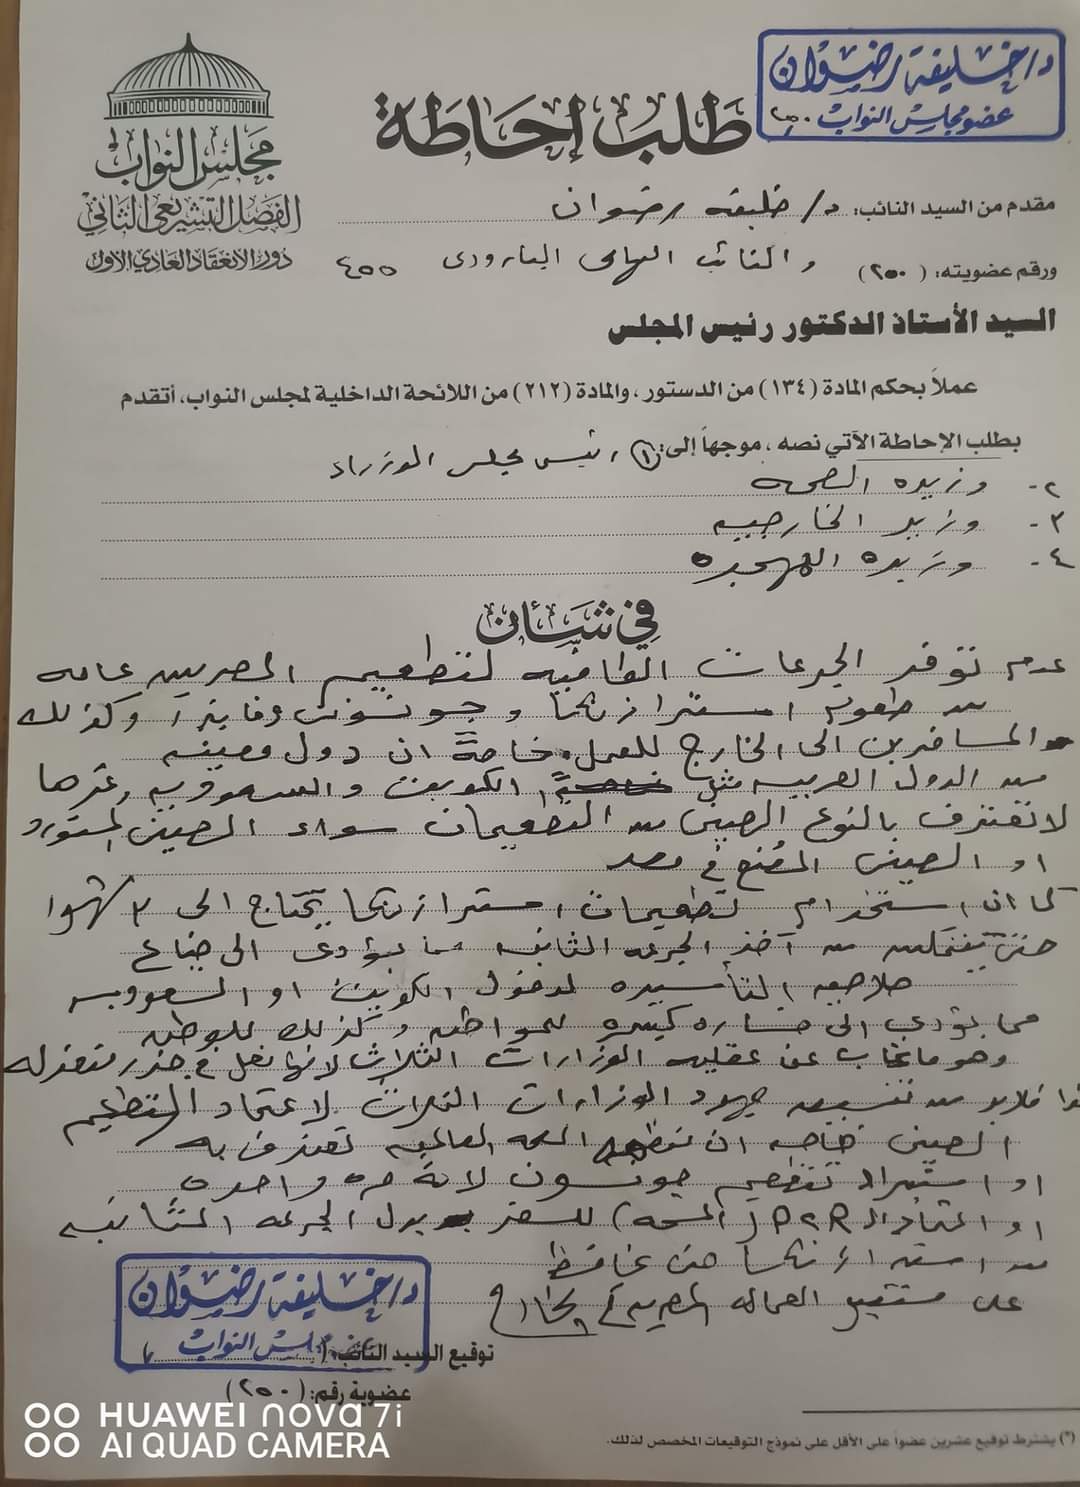 د/ خليفة رضوان
عضو مجلس النواب ٢٥٠
طلب إحاطة
مجلس النواب
الفصل التشريعى الثاني
دور الانعقاد العادي الاول
مقدم من السيد النائب: د/ خليفه رضوان
ورقم عضويته: (٢٥٠) والنائب التهامى البارودى ٤٥٥
السيد الأستاذ الدكتور رئيس المجلس
عملاً بحكم المادة (١٣٤) من الدستور، والمادة (٢١٢) من اللائحة الداخلية لمجلس النواب، أتقدم
بطلب الإحاطة الآتي نصه، موجهاً إلى: ١ رئيس مجلس الوزراء
٢- وزيره الصحه
٣- وزير الخارجيه
٤- وزيره الهجره
في شأن
عدم توفر الجرعات الكافيه لتطعيم المصريين عامه
من طعوم استرازنكا و جونسون وفايزر وكذلك
المسافرين الى الخارج للعمل. خاصة ان دول معينه
من الدول العربيه مثل الكويت والسعوديه وغيرها
لا تعترف بالنوع الصينى من التطعيمات سواء الصينى المستورد
او الصينى المصنع فى مصر
كما ان استخدام تطعيمات استرازنكا يحتاج الى ٣ شهور
حتى يتمكن من آخذ الجرعه الثانيه مما يؤدى الى ضياع
صلاحيه التأشيره لدخول الكويت او السعوديه
مما يؤدى الى خساره كبيره للمواطن وكذلك للوطن
وهو ما غاب عن عقليه الوزارات الثلاث لانها تعمل فى جزر منعزله
لذا فلابد من تنسيق جهود الوزارات الثلاث لاعتماد التطعيم
الصينى خاصه ان الصحه العالميه تعترف به
او استيراد تطعيم جونسون لانه مره واحده
او اعتماد الـ PCR (المسحه) للسفر بدل الجرعه الثانيه
من استرازنكا حتى نحافظ
على مستقبل العماله المصريه فى الخارج
د/ خليفة رضوان
عضو مجلس النواب
توقيع السيد النائب: (
عضوية رقم: (٢٥٠)
(*) يشترط توقيع عشرين عضواً على الأقل على نموذج التوقيعات المخصص لذلك.
HUAWEI nova 7i
AI QUAD CAMERA